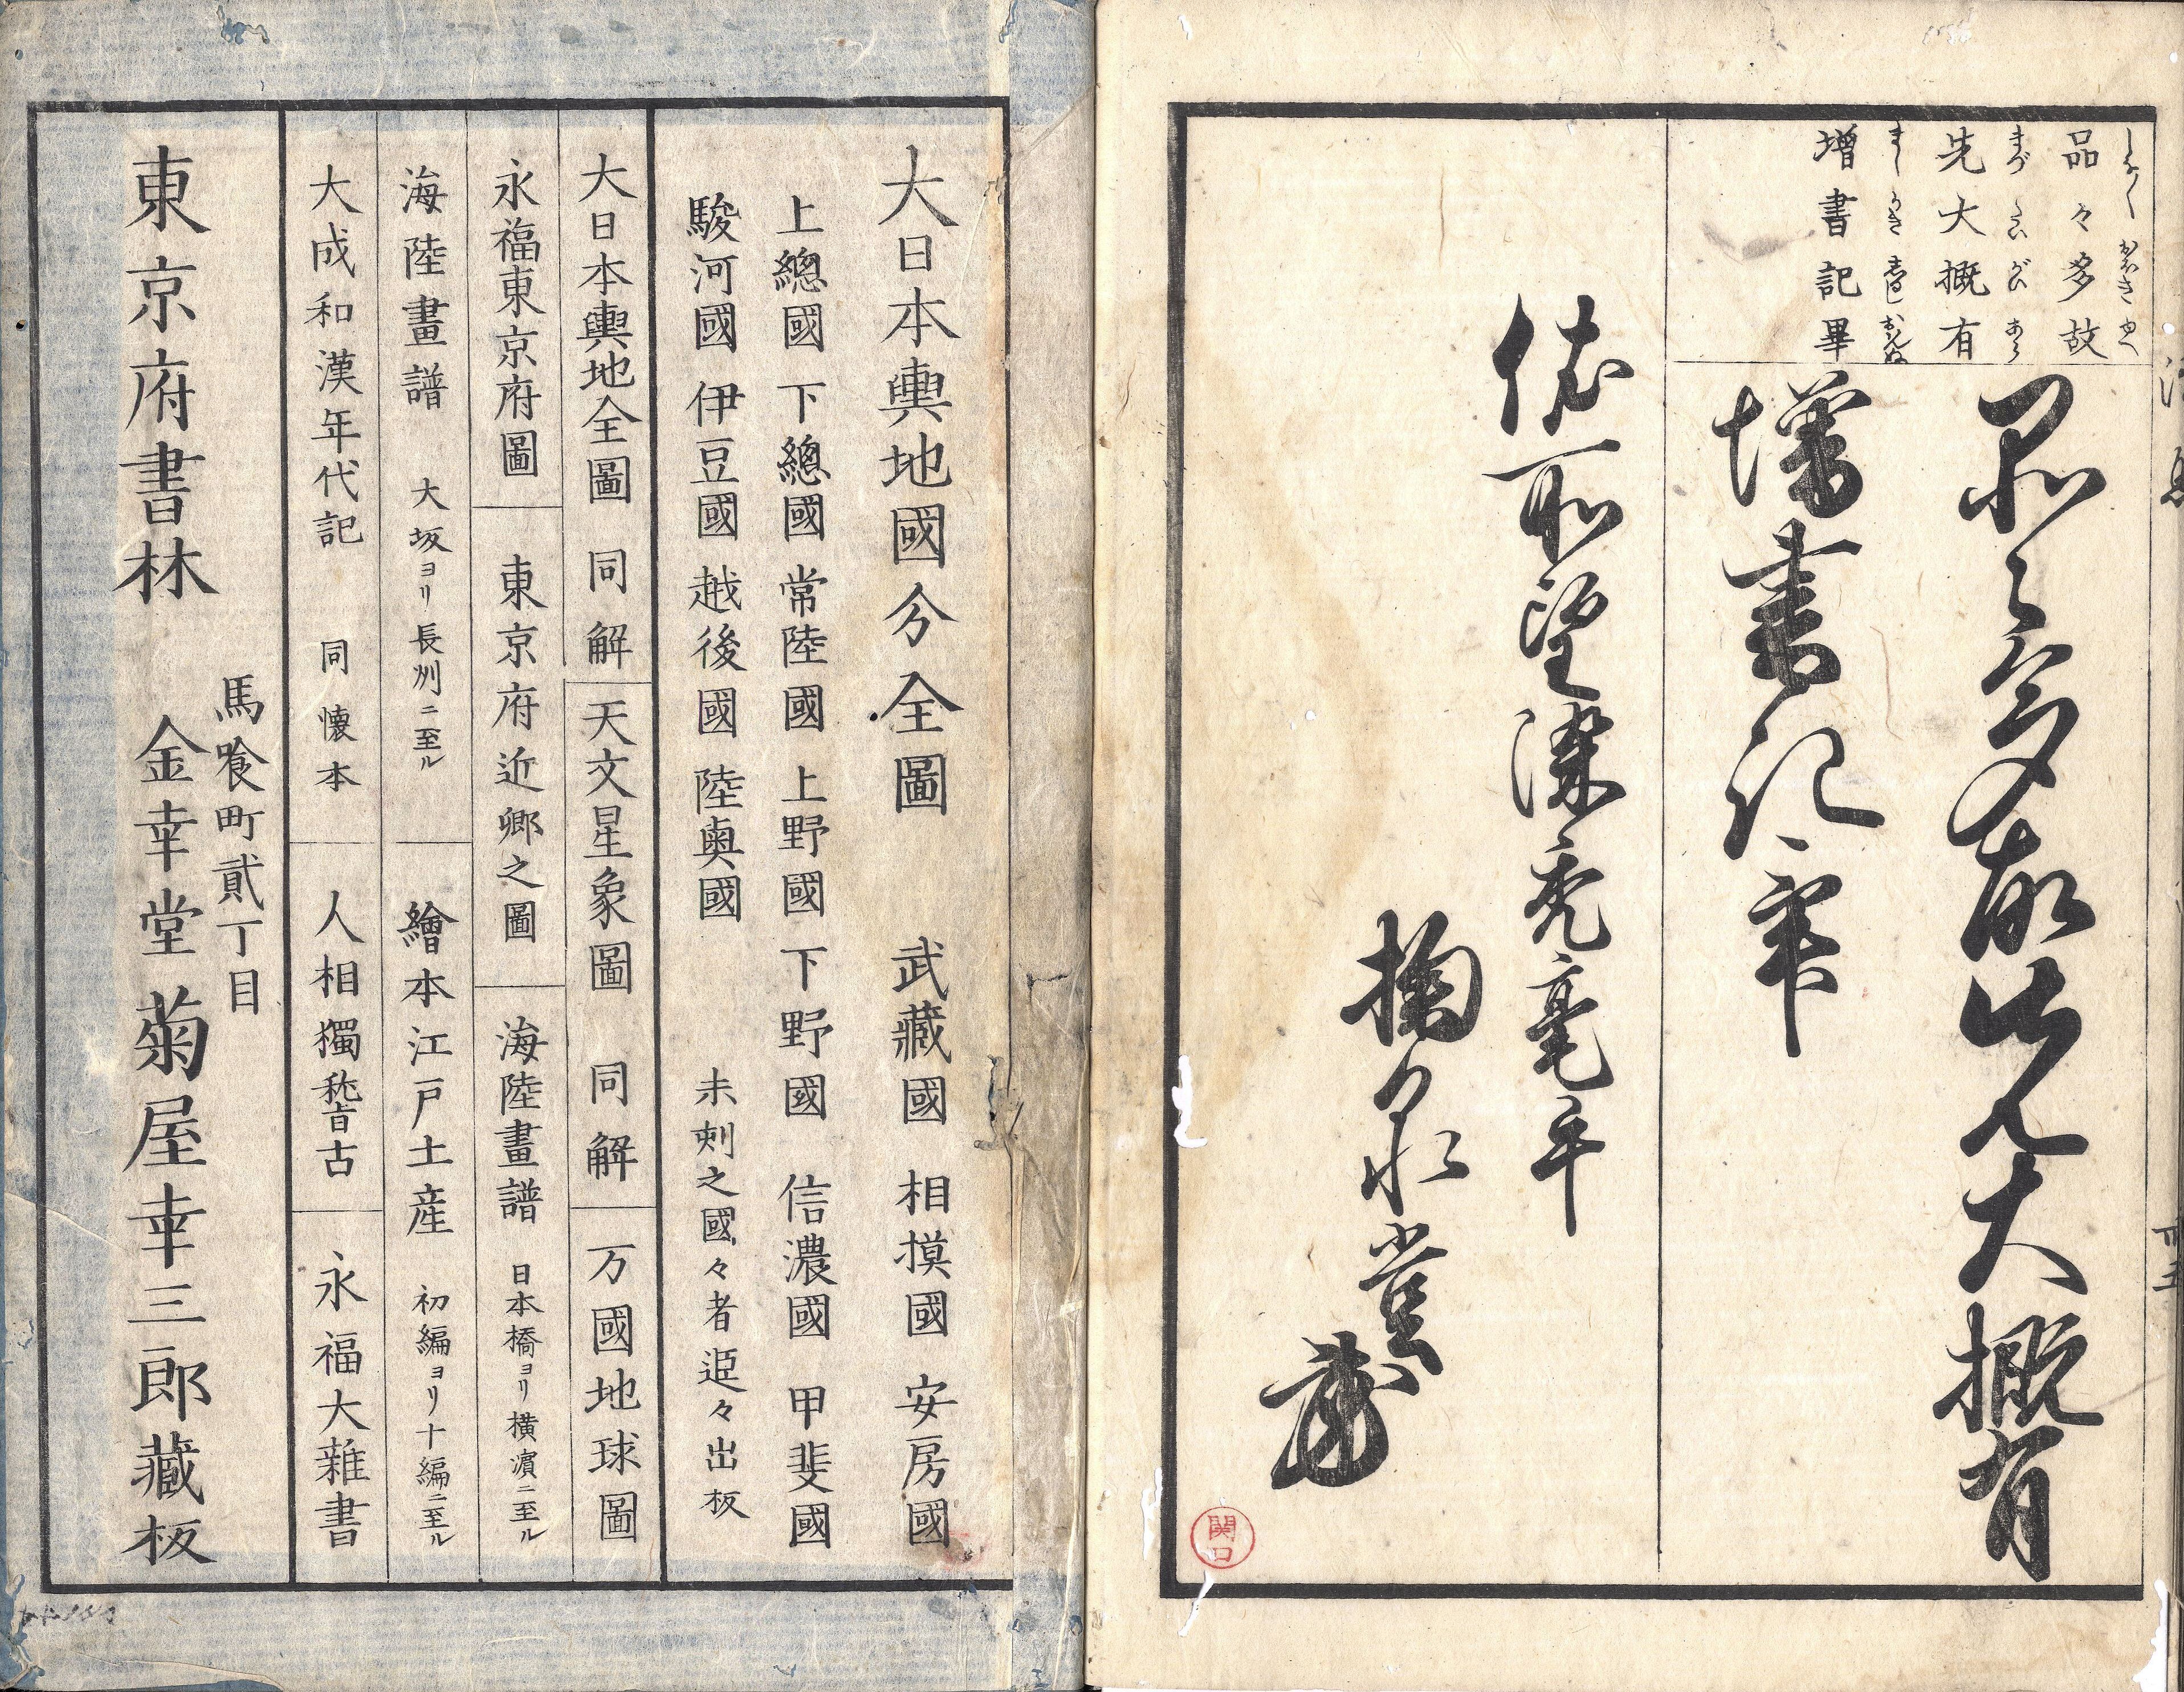 品々多故
しな〳〵おほきゆへ
先大概有
まづたいがいあら
増書記畢
ましかきしるしおんぬ
品々多故先大概有
増書記畢
依所望染禿毫平
掬泉堂
関口
大日本輿地國分全圖 武藏國 相摸國 安房國
上總國 下總國 常陸國 上野國 下野國 信濃國 甲斐國
駿河國 伊豆國 越後國 陸奥國 未刺之國々者逐々出板
大日本輿地全圖 同解 天文星象圖 同解 万國地球圖
永福東京府圖 東京府近郷之圖 海陸畫譜 日本橋ヨリ横濵ニ至ル
海陸畫譜 大坂ヨリ長州ニ至ル 繪本江戸土産 初編ヨリ十編ニ至ル
大成和漢年代記 同懐本 人相獨嵆古 永福大雜書
馬喰町貳丁目
東京府書林 金幸堂 菊屋幸三郎藏板